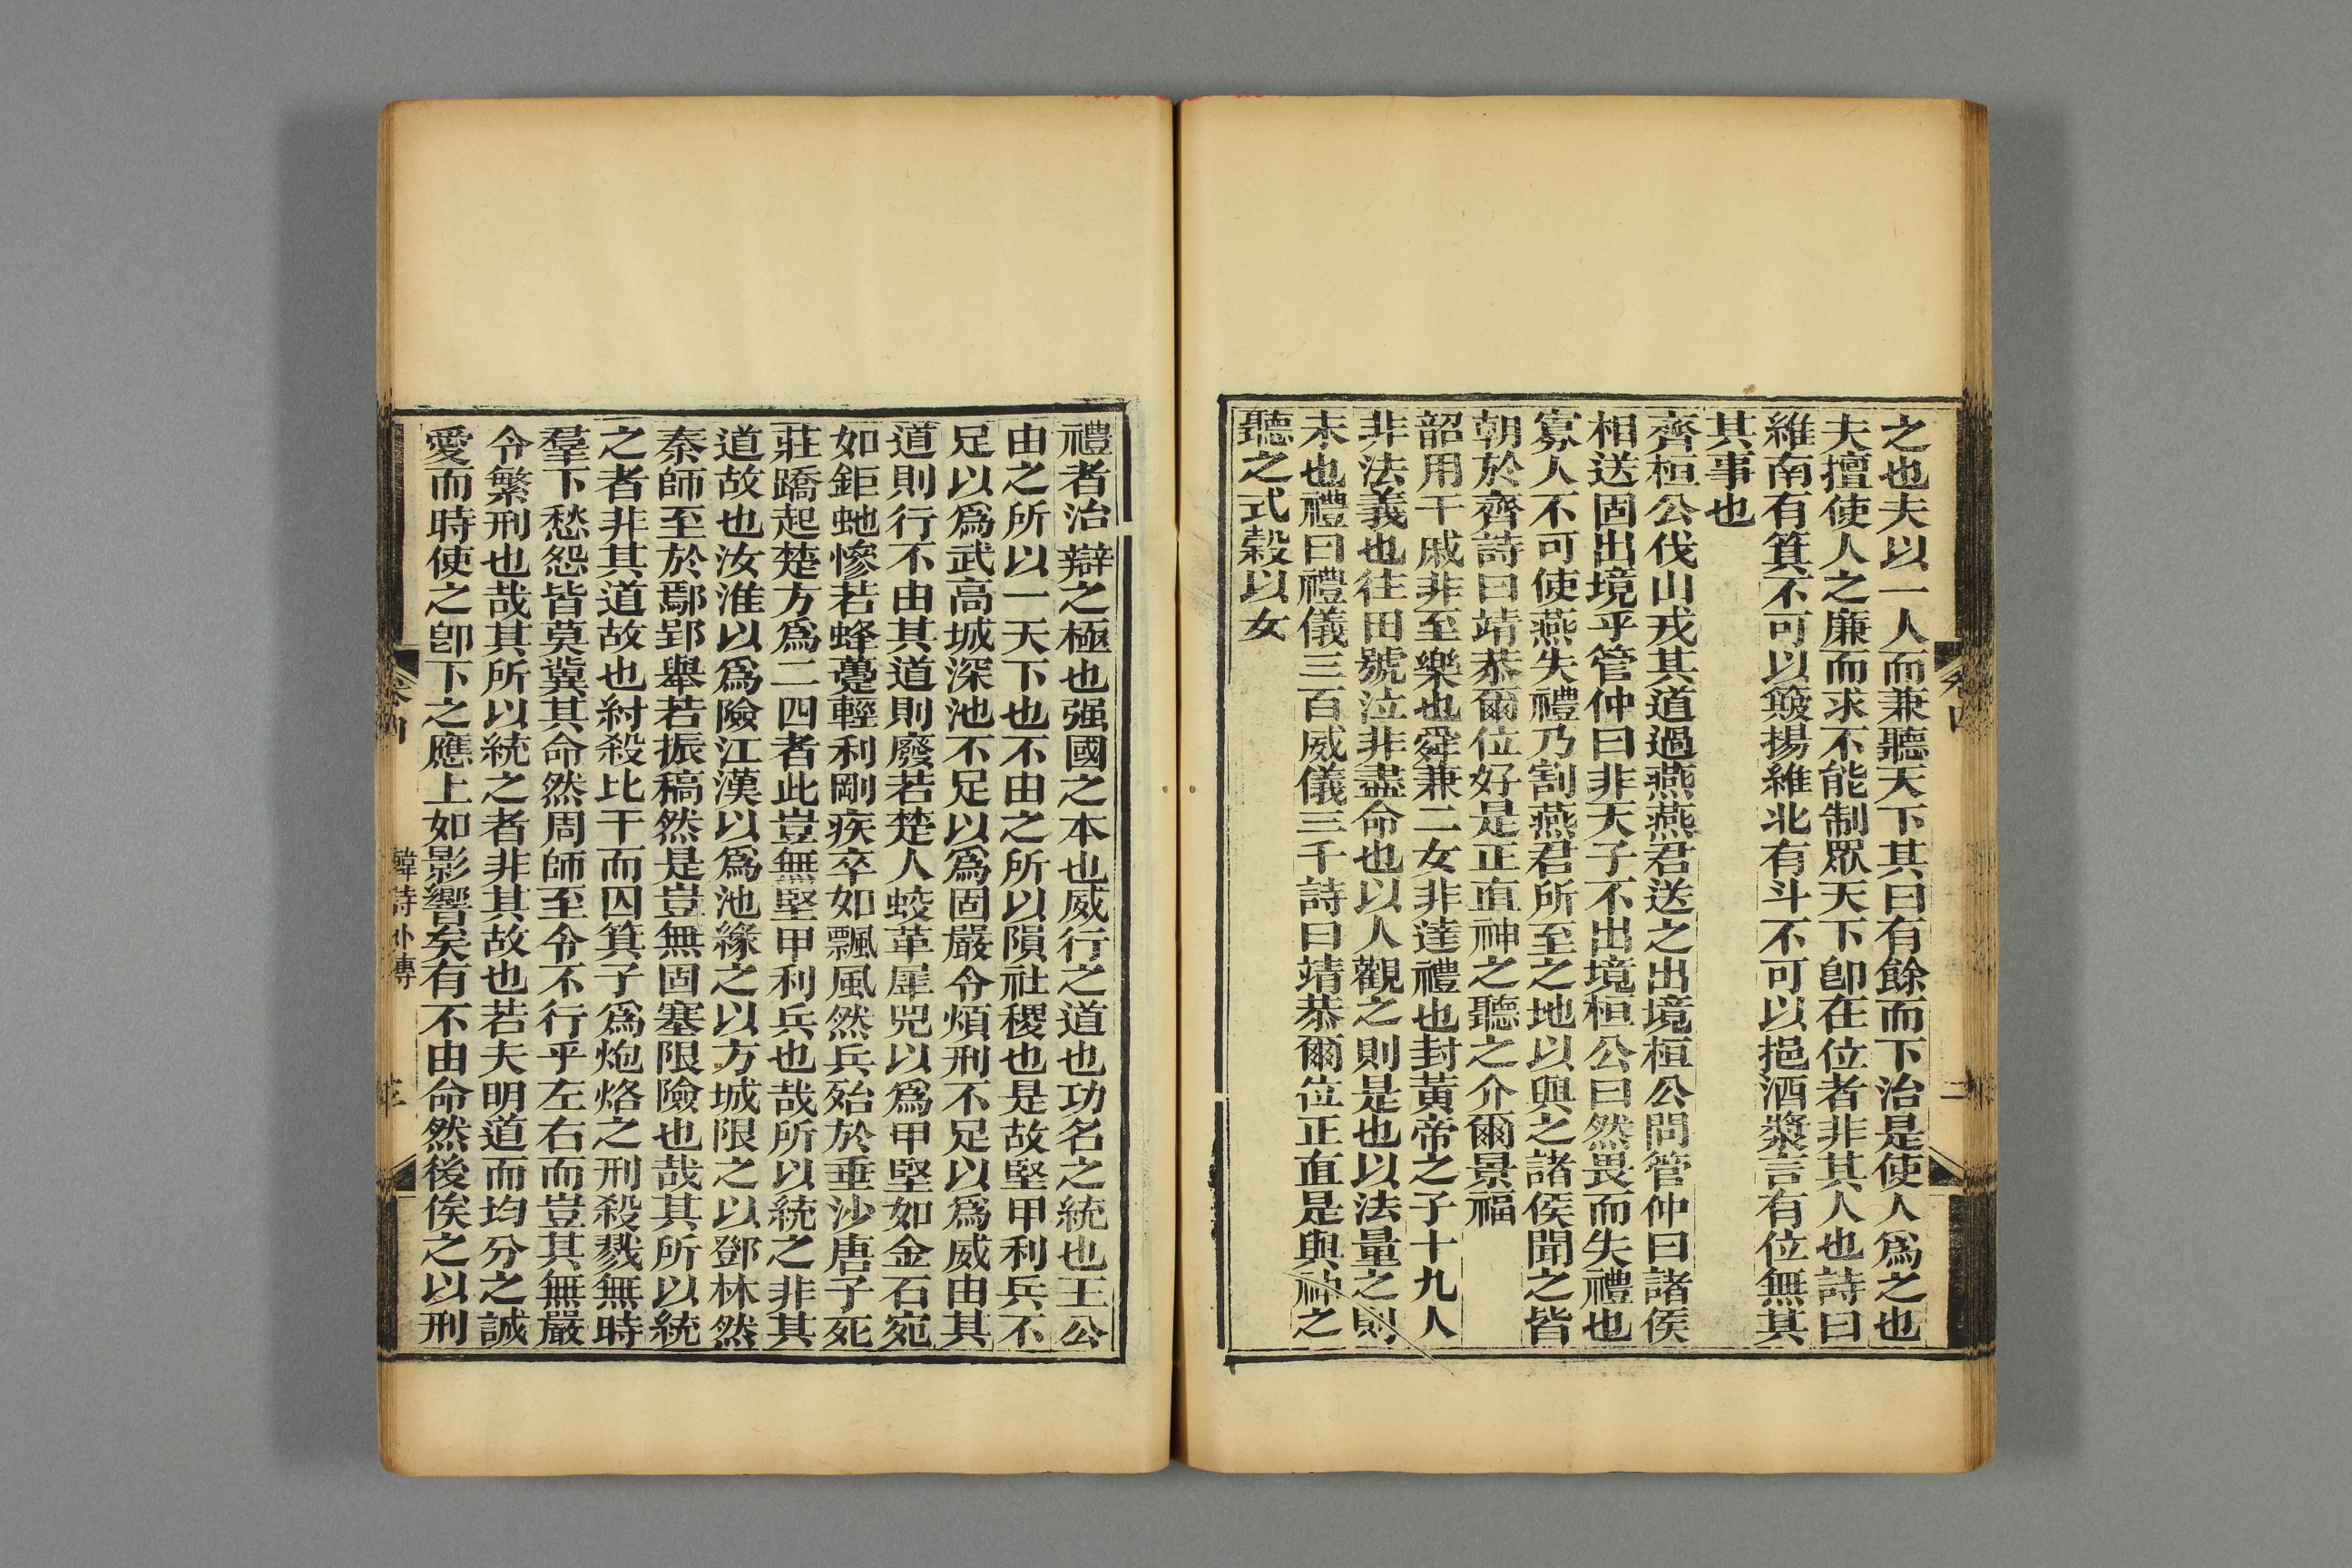 之也夫以一人而兼聽天下其日有餘而下治是使人爲之也
夫擅使人之廉而求不能制眾天下卽在位者非其人也詩曰
維南有箕不可以簸揚維北有斗不可以挹酒漿言有位無其
其事也
齊桓公伐山戎其道過燕燕君送之出境桓公問管仲曰諸侯
相送固出境乎管仲曰非天子不出境桓公曰然畏而失禮也
寡人不可使燕失禮乃割燕君所至之地以與之諸侯聞之皆
朝於齊詩曰靖恭爾位好是正直神之聽之介爾景福
韶用干戚非至樂也舜兼二女非達禮也封黃帝之子十九人
非法義也往田號泣非盡命也以人觀之則是也以法量之則
未也禮曰禮儀三百威儀三千詩曰靖恭爾位正直是與神之
聽之式穀以女
卷四
二
禮者治辯之極也强國之本也威行之道也功名之統也王公
由之所以一天下也不由之所以隕社稷也是故堅甲利兵不
足以爲武高城深池不足以爲固嚴令煩刑不足以爲威由其
道則行不由其道則廢若楚人蛟革犀兕以爲甲堅如金石宛
如鉅虵慘若蜂蠆輕利剛疾卒如飄風然兵殆於垂沙唐子死
莊蹻起楚方爲二四者此豈無堅甲利兵也哉所以統之非其
道故也汝淮以爲險江漢以爲池緣之以方城限之以鄧林然
秦師至於鄢郢舉若振稿然是豈無固塞限險也哉其所以統
之者非其道故也紂殺比干而囚箕子爲炮烙之刑殺戮無時
羣下愁怨皆莫冀其命然周師至令不行乎左右而豈其無嚴
令繁刑也哉其所以統之者非其故也若夫明道而均分之誠
愛而時使之卽下之應上如影響矣有不由命然後俟之以刑
卷四
韓詩外傳
三